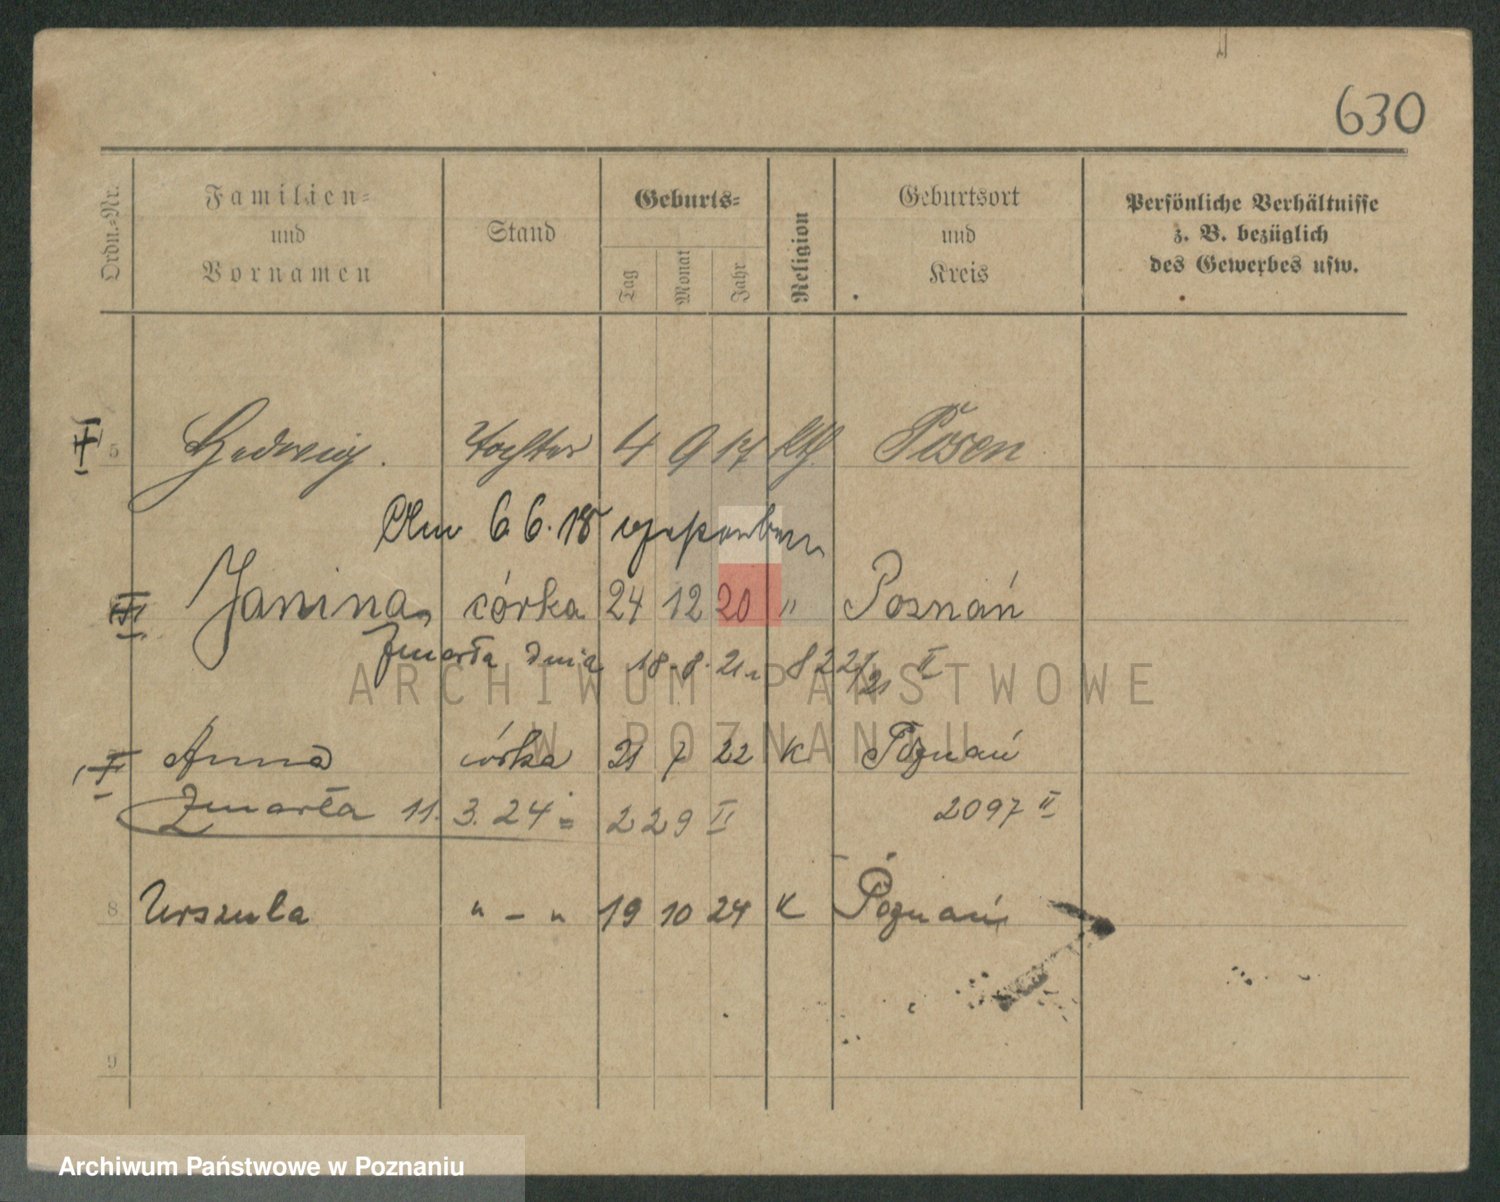 630
Ordn.=Nr.
Familien=
und
Vornamen
Stand
Geburts=
Tag
Monat
Jahr
Religion
Geburtsort
und
Kreis
Persönliche Verhältnisse
z. B. bezüglich
des Gewerbes usw.
5 Hedwig. Tochter 4 9 17 kth. Posen
Am 6 6. 18
III Janina córka 24 12 20 " Poznań
Zmarła dnia 18.8.21. 822/21 II
Anna córka 21 7 22 K Poznań
Zmarła 11. 3. 24 = 229 II 2097 II
8 Urszula " – " 19 10 24 K Poznań
9
ARCHIWUM PAŃSTWOWE
W POZNANIU
Archiwum Państwowe w Poznaniu